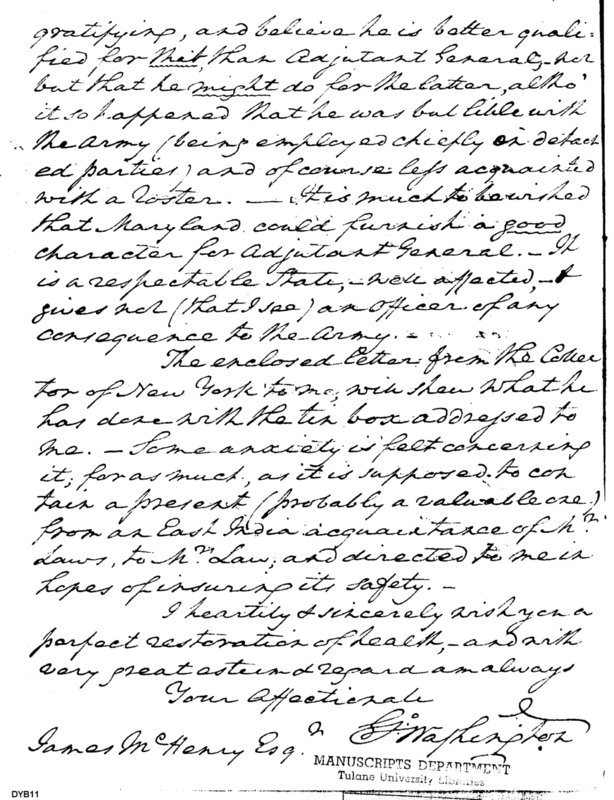 gratifying, and believe he is better quali=
fied for that, than Adjutant General;- not
but that he might do for the latter, altho'
it so happened that he was but little with
the Army (being employed chiefly on detach
ed parties) and of course less acquainted
with a roster. — It is much to be wished
that Maryland could furnish a good
character for Adjutant General. - It
is a respectable State, - well affected, - &
gives not (that I see) an Officer of any
consequence to the Army. -
The enclosed letter from the Collec
tor of New York to me, will shew what he
has done with the tin box addressed to
me. - Some anxiety is felt concerning
it; for as much, as it is supposed to con
tain a present (probably a valuable one)
from an East India acquaintance of Mr.
Laws, to Mrs. Law; and directed to me in
hopes of insuring its safety. -
I heartily & sincerely wish you a
perfect restoration of health, - and with
very great esteem & regard am always
Your Affectionate
Go. Washington
James McHenry Esqr.
MANUSCRIPTS DEPARTMENT
Tulane University Libraries
DYB11